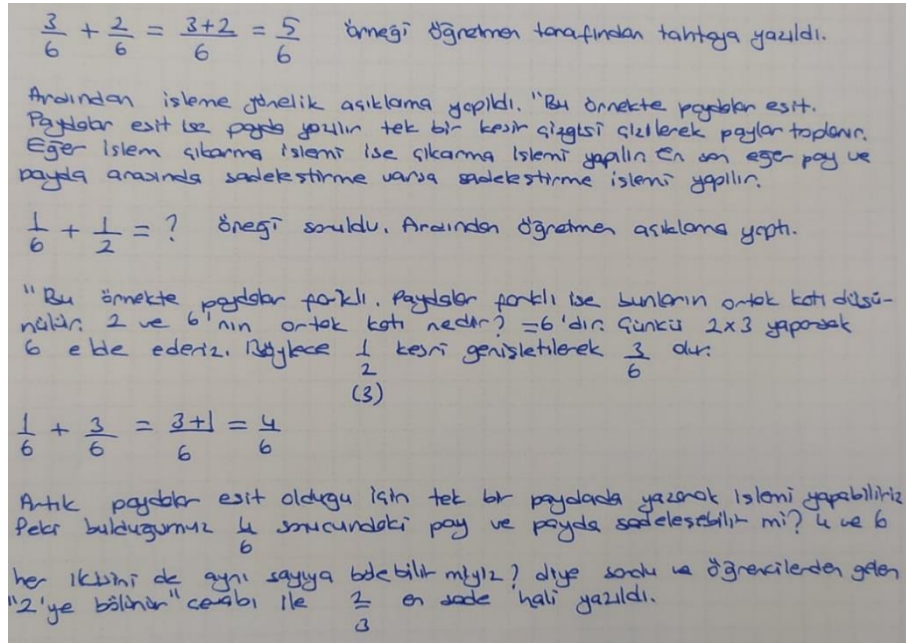 3/6 + 2/6 = 3+2/6 = 5/6 örneği öğretmen tarafından tahtaya yazıldı.
Ardından işleme yönelik açıklama yapıldı. "Bu örnekte paydalar eşit.
Paydalar eşit ise payda yazılır tek bir kesir çizgisi çizilerek paylar toplanır.
Eğer işlem çıkarma işlemi ise çıkarma işlemi yapılır. En son eğer pay ve
payda arasında sadeleştirme varsa sadeleştirme işlemi yapılır.
1/6 + 1/2 = ? öneği soruldu. Ardından öğretmen açıklama yaptı.
"Bu örnekte paydalar farklı. Paydalar farklı ise bunların ortak katı düşü-
nülür. 2 ve 6'nın ortak katı nedir? =6'dır. Çünkü 2x3 yaparsak
6 elde ederiz. Böylece 1/2 kesri genişletilerek 3/6 olur.
(3)
1/6 + 3/6 = 3+1/6 = 4/6
Artık paydalar eşit olduğu için tek bir paydada yazarak işlemi yapabiliriz
Peki bulduğumuz 4/6 sonucundaki pay ve payda sadeleşebilir mi? 4 ve 6
her ikisini de aynı sayıya bölebilir miyiz? diye sordu ve öğrencilerden gelen
"2'ye bölünür" cevabı ile 2/3 en sade hali yazıldı.